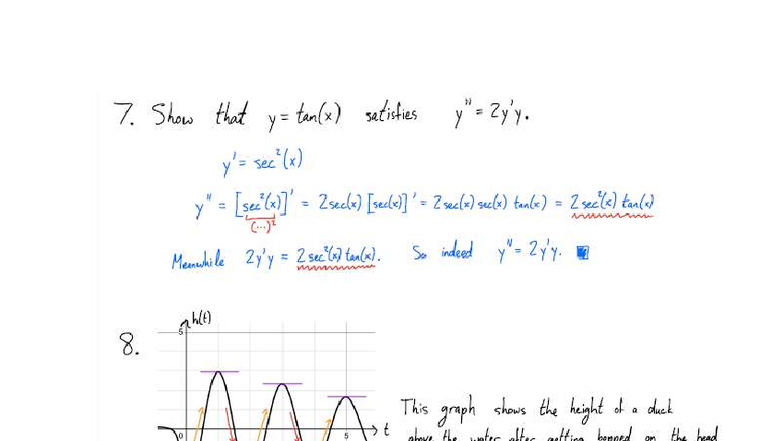 7. Show that y = tan(x) satisfies y'' = 2y'y.
y' = sec²(x)
y'' = [sec²(x)]' = 2sec(x) [sec(x)]' = 2 sec(x) sec(x) tan(x) = 2 sec²(x) tan(x)
(...)²
Meanwhile 2y'y = 2 sec²(x) tan(x). So indeed y'' = 2y'y.
h(t)
5
8.
This graph shows the height of a duck
0 5 t
above the water after getting bonped on the head